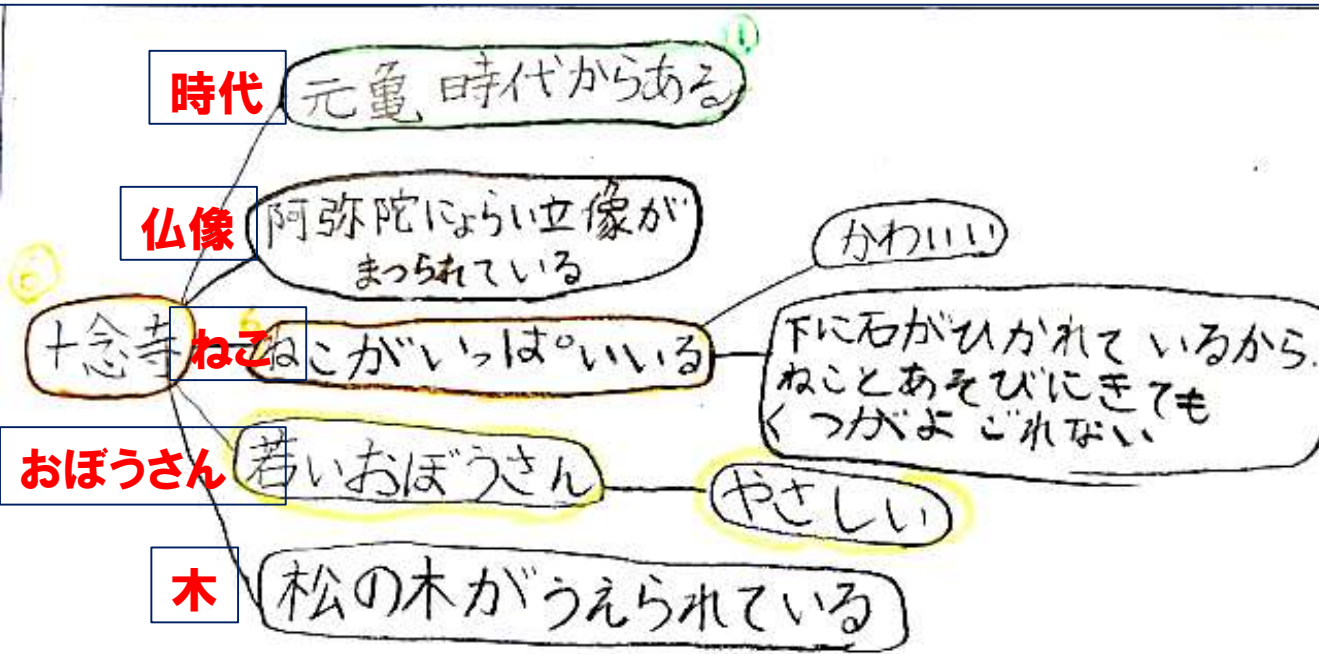 時代
元亀時代からある
仏像
阿弥陀にょらい立像が
まつられている
かわいい
十念寺
ねこ
ねこがいっぱいいる
下に石がひかれているから、
ねことあそびにきても
くつがよごれない
おぼうさん
若いおぼうさん
やさしい
木
松の木がうえられている